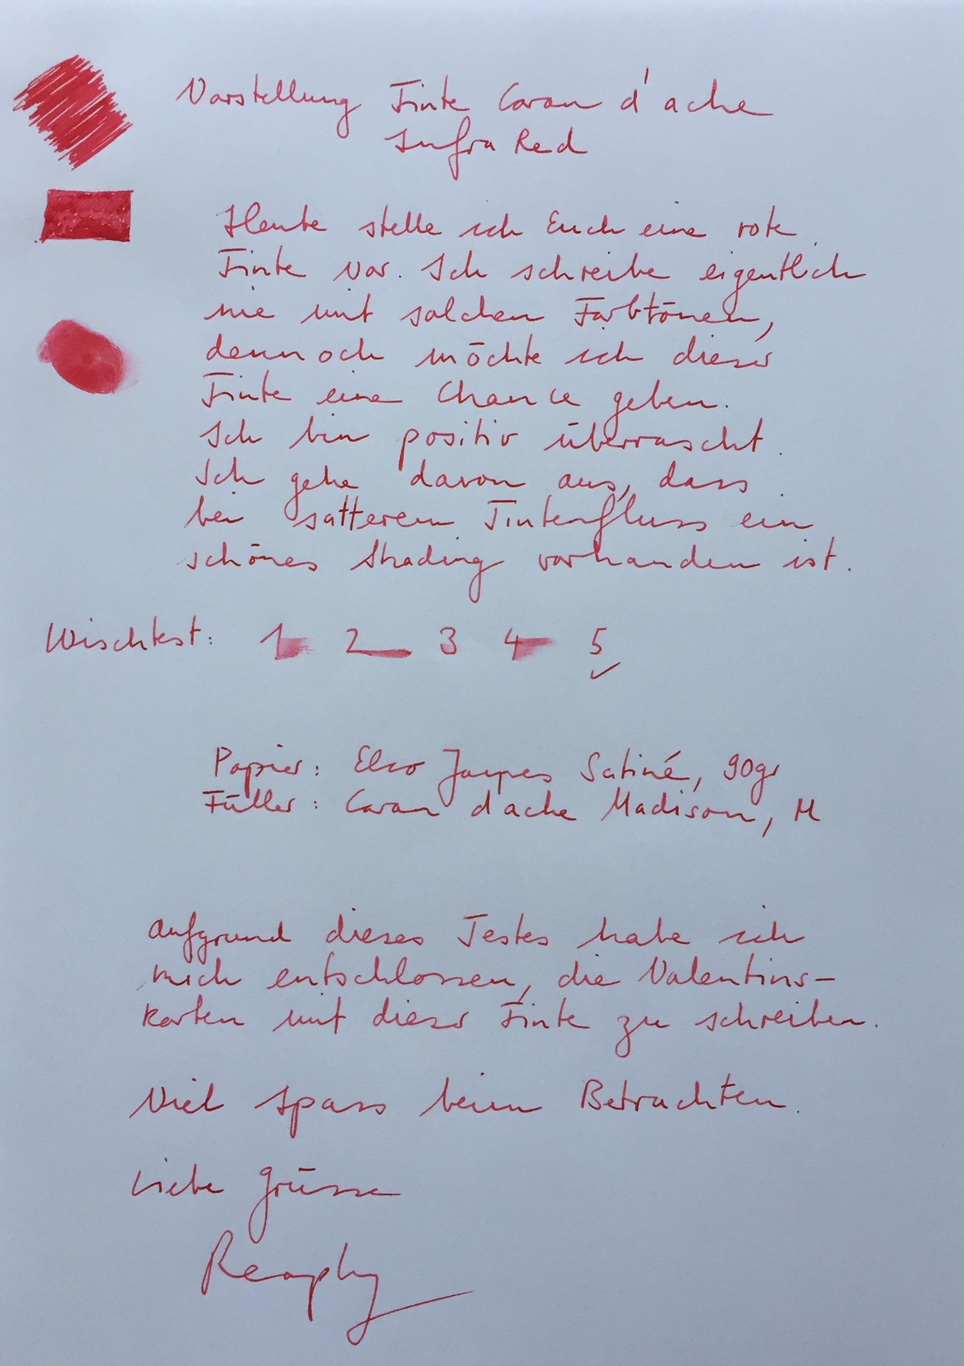 Vorstellung Tinte Caran d'ache
Infra Red
Heute stelle ich Euch eine rote
Tinte vor. Ich schreibe eigentlich
nie mit solchen Farbtönen,
dennoch möchte ich dieser
Tinte eine Chance geben.
Ich bin positiv überrascht.
Ich gehe davon aus, dass
bei satterem Tintenfluss ein
schönes Shading vorhanden ist.
Wischtest: 1 2 3 4 5 ✓
Papier: Elco James Satiné, 90gr
Füller: Caran d'ache Madison, M
Aufgrund dieses Testes habe ich
mich entschlossen, die Valentins-
karten mit dieser Tinte zu schreiben.
Viel Spass beim Betrachten.
Liebe Grüsse